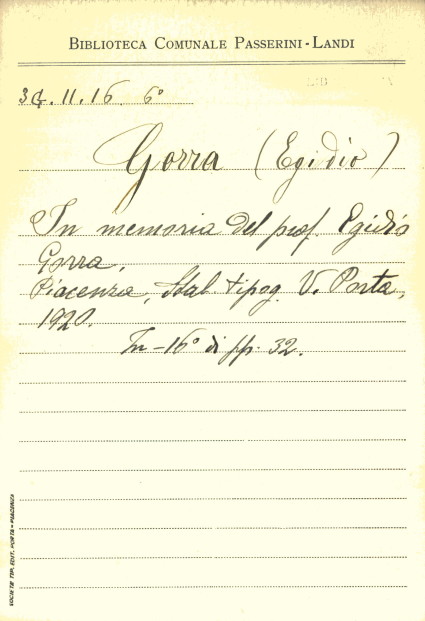 BIBLIOTECA COMUNALE PASSERINI-LANDI
3G.11.16. 6°
Gorra (Egidio)
In memoria del prof. Egidio
Gorra.
Piacenza, Stab. tipog. V. Porta,
1920.
In-16° di pp. 32.
SOCIETÀ TIP. EDIT. PORTA - PIACENZA